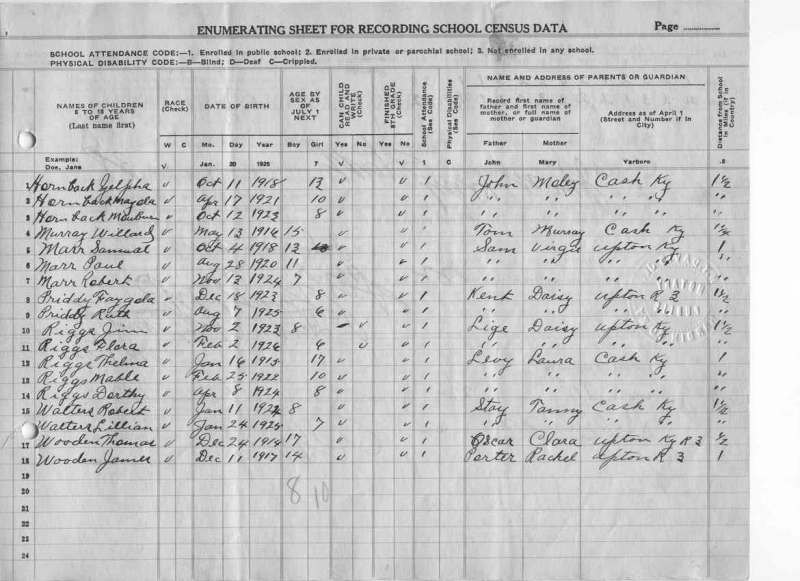 ENUMERATING SHEET FOR RECORDING SCHOOL CENSUS DATA Page
SCHOOL ATTENDANCE CODE:—1. Enrolled in public school; 2. Enrolled in private or parochial school; 3. Not enrolled in any school.
PHYSICAL DISABILITY CODE:—B—Blind; D—Deaf C—Crippled.
NAMES OF CHILDREN 6 TO 18 YEARS OF AGE (Last name first) RACE (Check) DATE OF BIRTH AGE BY SEX AS OF JULY 1 NEXT CAN CHILD READ AND WRITE (Check) FINISHED 8TH GRADE (Check) School Attendance (See Code) Physical Disabilities (See Code) NAME AND ADDRESS OF PARENTS OR GUARDIAN Distance from School in Miles (If in Country)
Record first name of father and first name of mother, or full name of mother or guardian Address as of April 1 (Street and Number if in City)
W C Mo. Day Year Boy Girl Yes No Yes No Father Mother
Example: Doe, Jane V Jan. 20 1925 7 V V 1 C John Mary Yarboro .5
1 Hornback Zelpha v Oct 11 1918 12 v v 1 John Maley Cash Ky 1 1/2
2 Hornback Mayola v Apr 17 1921 10 v v 1 " " " " " "
3 Hornback v Oct 12 1923 8 v v 1 " " " " " "
4 Murray Willard v May 13 1916 15 v v 1 Tom Murray Cash Ky
5 Marr Samual v Oct 4 1918 13 v v 1 Sam Virgie Upton Ky 1
6 Marr Paul v Aug 28 1920 11 v v 1 " " " " "
7 Marr Robert v Nov 13 1924 7 v v 1 " " " " "
8 Priddy Faygola v Dec 18 1923 8 v v 1 Kent Daisy Upton R 3 1 1/2
9 Priddy Ruth v Aug 7 1925 6 v v 1 " " " "
10 Riggs Jim v Nov 2 1923 8 – v v 1 Lige Daisy Upton Ky 1 1/2
11 Riggs Flora v Feb 2 1926 6 v v 1 " " " " "
12 Riggs Thelma v Jan 16 1915 17 v v 1 Levy Laura Cash Ky 1
13 Riggs Mable v Feb 25 1922 10 v v 1 " " " " "
14 Riggs Dorthy v Apr 8 1924 8 v v 1 " " " " "
15 Walters Robert v Jan 11 1924 8 v v 1 Stoy Fanny Cash Ky 1 1/2
16 Walters Lillian v Jan 24 1925 7 v v 1 " " " " "
17 Wooden Thomas v Dec 24 1914 17 v v 1 Oscar Clara Upton Ky R 3 1/2
18 Wooden James v Dec 11 1917 14 v v 1 Porter Rachel Upton R 3 1
19
20 8 10
21
22
23
24